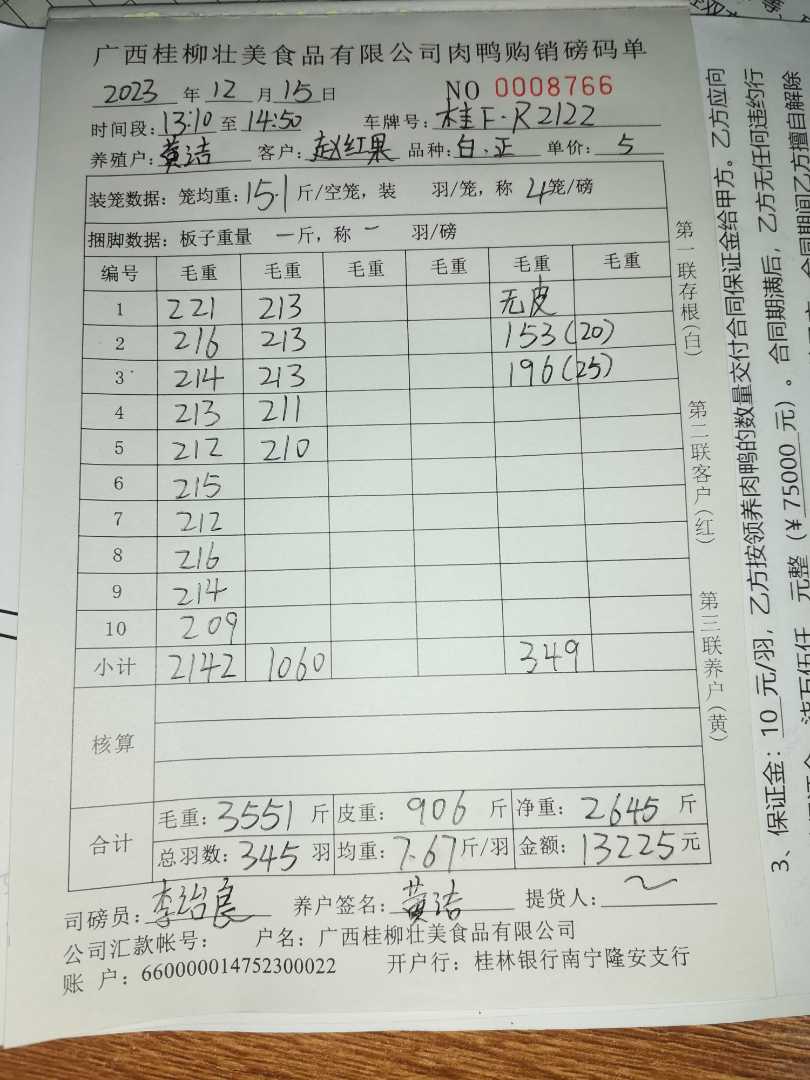 广西桂柳壮美食品有限公司肉鸭购销磅码单
2023 年 12 月 15 日 NO 0008766
时间段: 13:10 至 14:50 车牌号: 桂F·R2122
养殖户: 黄洁 客户: 赵红果 品种: 白、正 单价: 5
装笼数据: 笼均重: 15.1 斤/空笼, 装 羽/笼, 称 4 笼/磅
捆脚数据: 板子重量 一 斤, 称 一 羽/磅
编号 毛重 毛重 毛重 毛重 毛重 毛重
1 221 213 无皮
2 216 213 153(20)
3 214 213 196(25)
4 213 211
5 212 210
6 215
7 212
8 216
9 214
10 209
小计 2142 1060 349
核算
合计
毛重: 3551 斤 皮重: 906 斤 净重: 2645 斤
总羽数: 345 羽 均重: 7.67 斤/羽 金额: 13225 元
司磅员: 李治良 养户签名: 黄洁 提货人:
公司汇款帐号: 户名: 广西桂柳壮美食品有限公司
账 户: 660000014752300022 开户行: 桂林银行南宁隆安支行
第一联存根(白)
第二联客户(红)
第三联养户(黄)
3、保证金: 10 元/羽, 乙方按领养肉鸭的数量交付合同保证金给甲方。乙方应向
元整 (¥ 75000 元) 。合同期满后, 乙方无任何违约行
合同期间乙方擅自解除